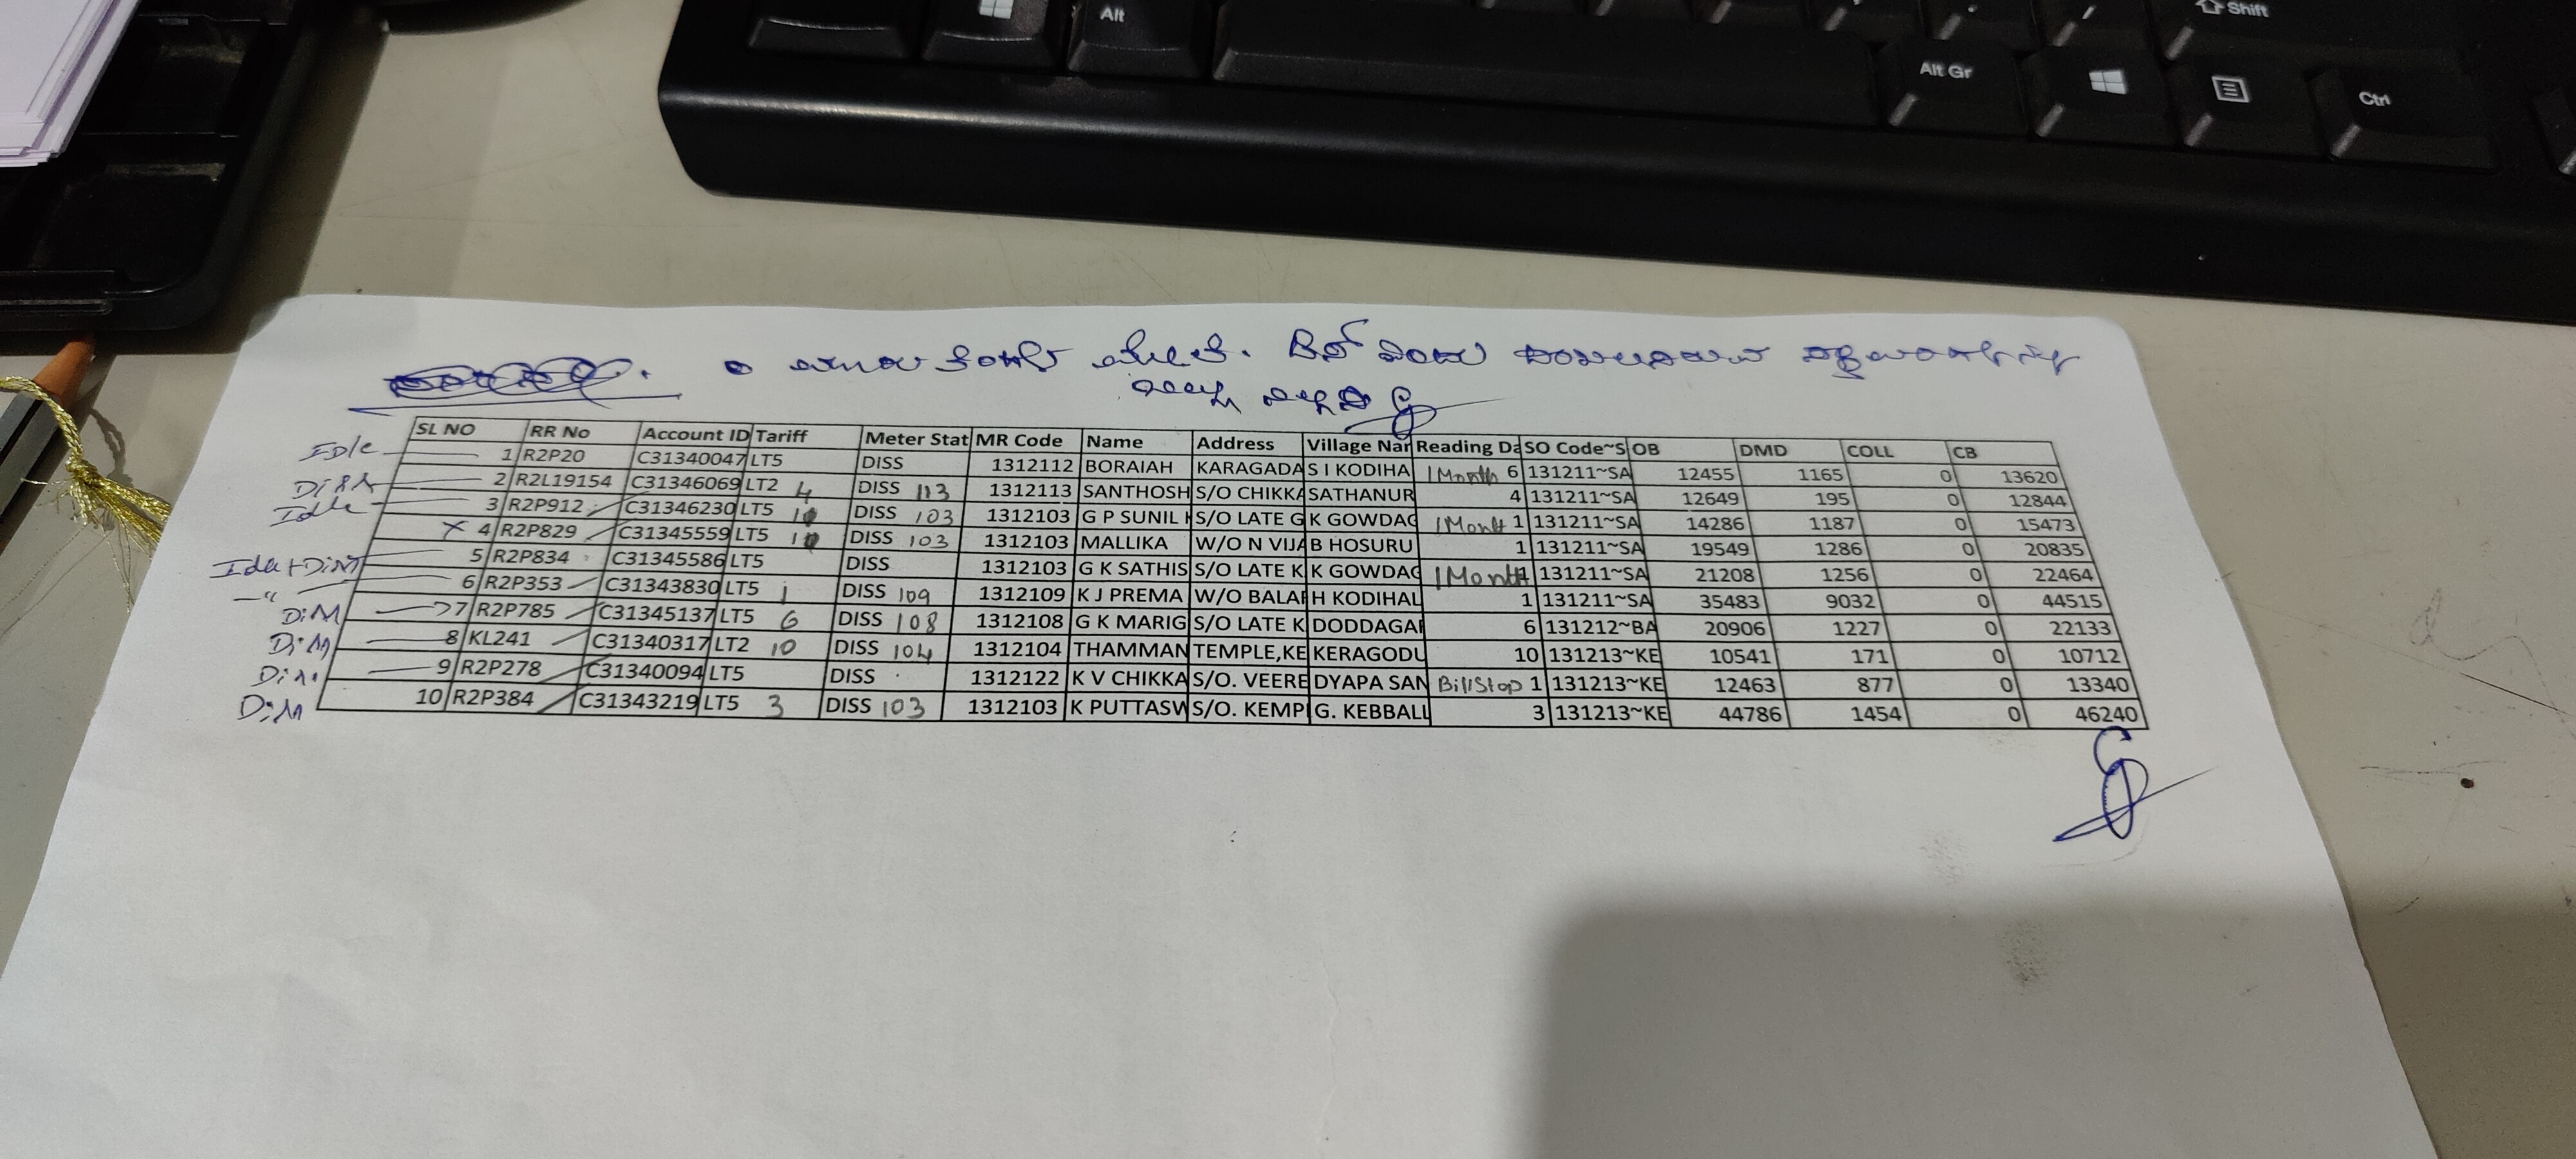 Alt
Shift
Alt Gr
Ctrl
SL NO RR No Account ID Tariff Meter Stat MR Code Name Address Village Nar Reading Da SO Code~S OB DMD COLL CB
Idle 1 R2P20 C31340047 LT5 DISS 1312112 BORAIAH KARAGADA S I KODIHA 1 Month 6 131211~SA 12455 1165 0 13620
2 R2L19154 C31346069 LT2 4 DISS 113 1312113 SANTHOSH S/O CHIKKA SATHANUR 4 131211~SA 12649 195 0 12844
Idle 3 R2P912 C31346230 LT5 DISS 103 1312103 G P SUNIL S/O LATE G K GOWDAG 1 Month 1 131211~SA 14286 1187 0 15473
x 4 R2P829 C31345559 LT5 DISS 103 1312103 MALLIKA W/O N VIJA B HOSURU 1 131211~SA 19549 1286 0 20835
5 R2P834 C31345586 LT5 DISS 1312103 G K SATHIS S/O LATE K K GOWDAG 1 Month 131211~SA 21208 1256 0 22464
-"- 6 R2P353 C31343830 LT5 1 DISS 109 1312109 K J PREMA W/O BALAR H KODIHAL 1 131211~SA 35483 9032 0 44515
7 R2P785 C31345137 LT5 6 DISS 108 1312108 G K MARIG S/O LATE K DODDAGA 6 131212~BA 20906 1227 0 22133
8 KL241 C31340317 LT2 10 DISS 104 1312104 THAMMAN TEMPLE,KE KERAGODU 10 131213~KE 10541 171 0 10712
9 R2P278 C31340094 LT5 DISS 1312122 K V CHIKKA S/O. VEERE DYAPA SAN Bill Stop 1 131213~KE 12463 877 0 13340
10 R2P384 C31343219 LT5 3 DISS 103 1312103 K PUTTASW S/O. KEMP G. KEBBALL 3 131213~KE 44786 1454 0 46240